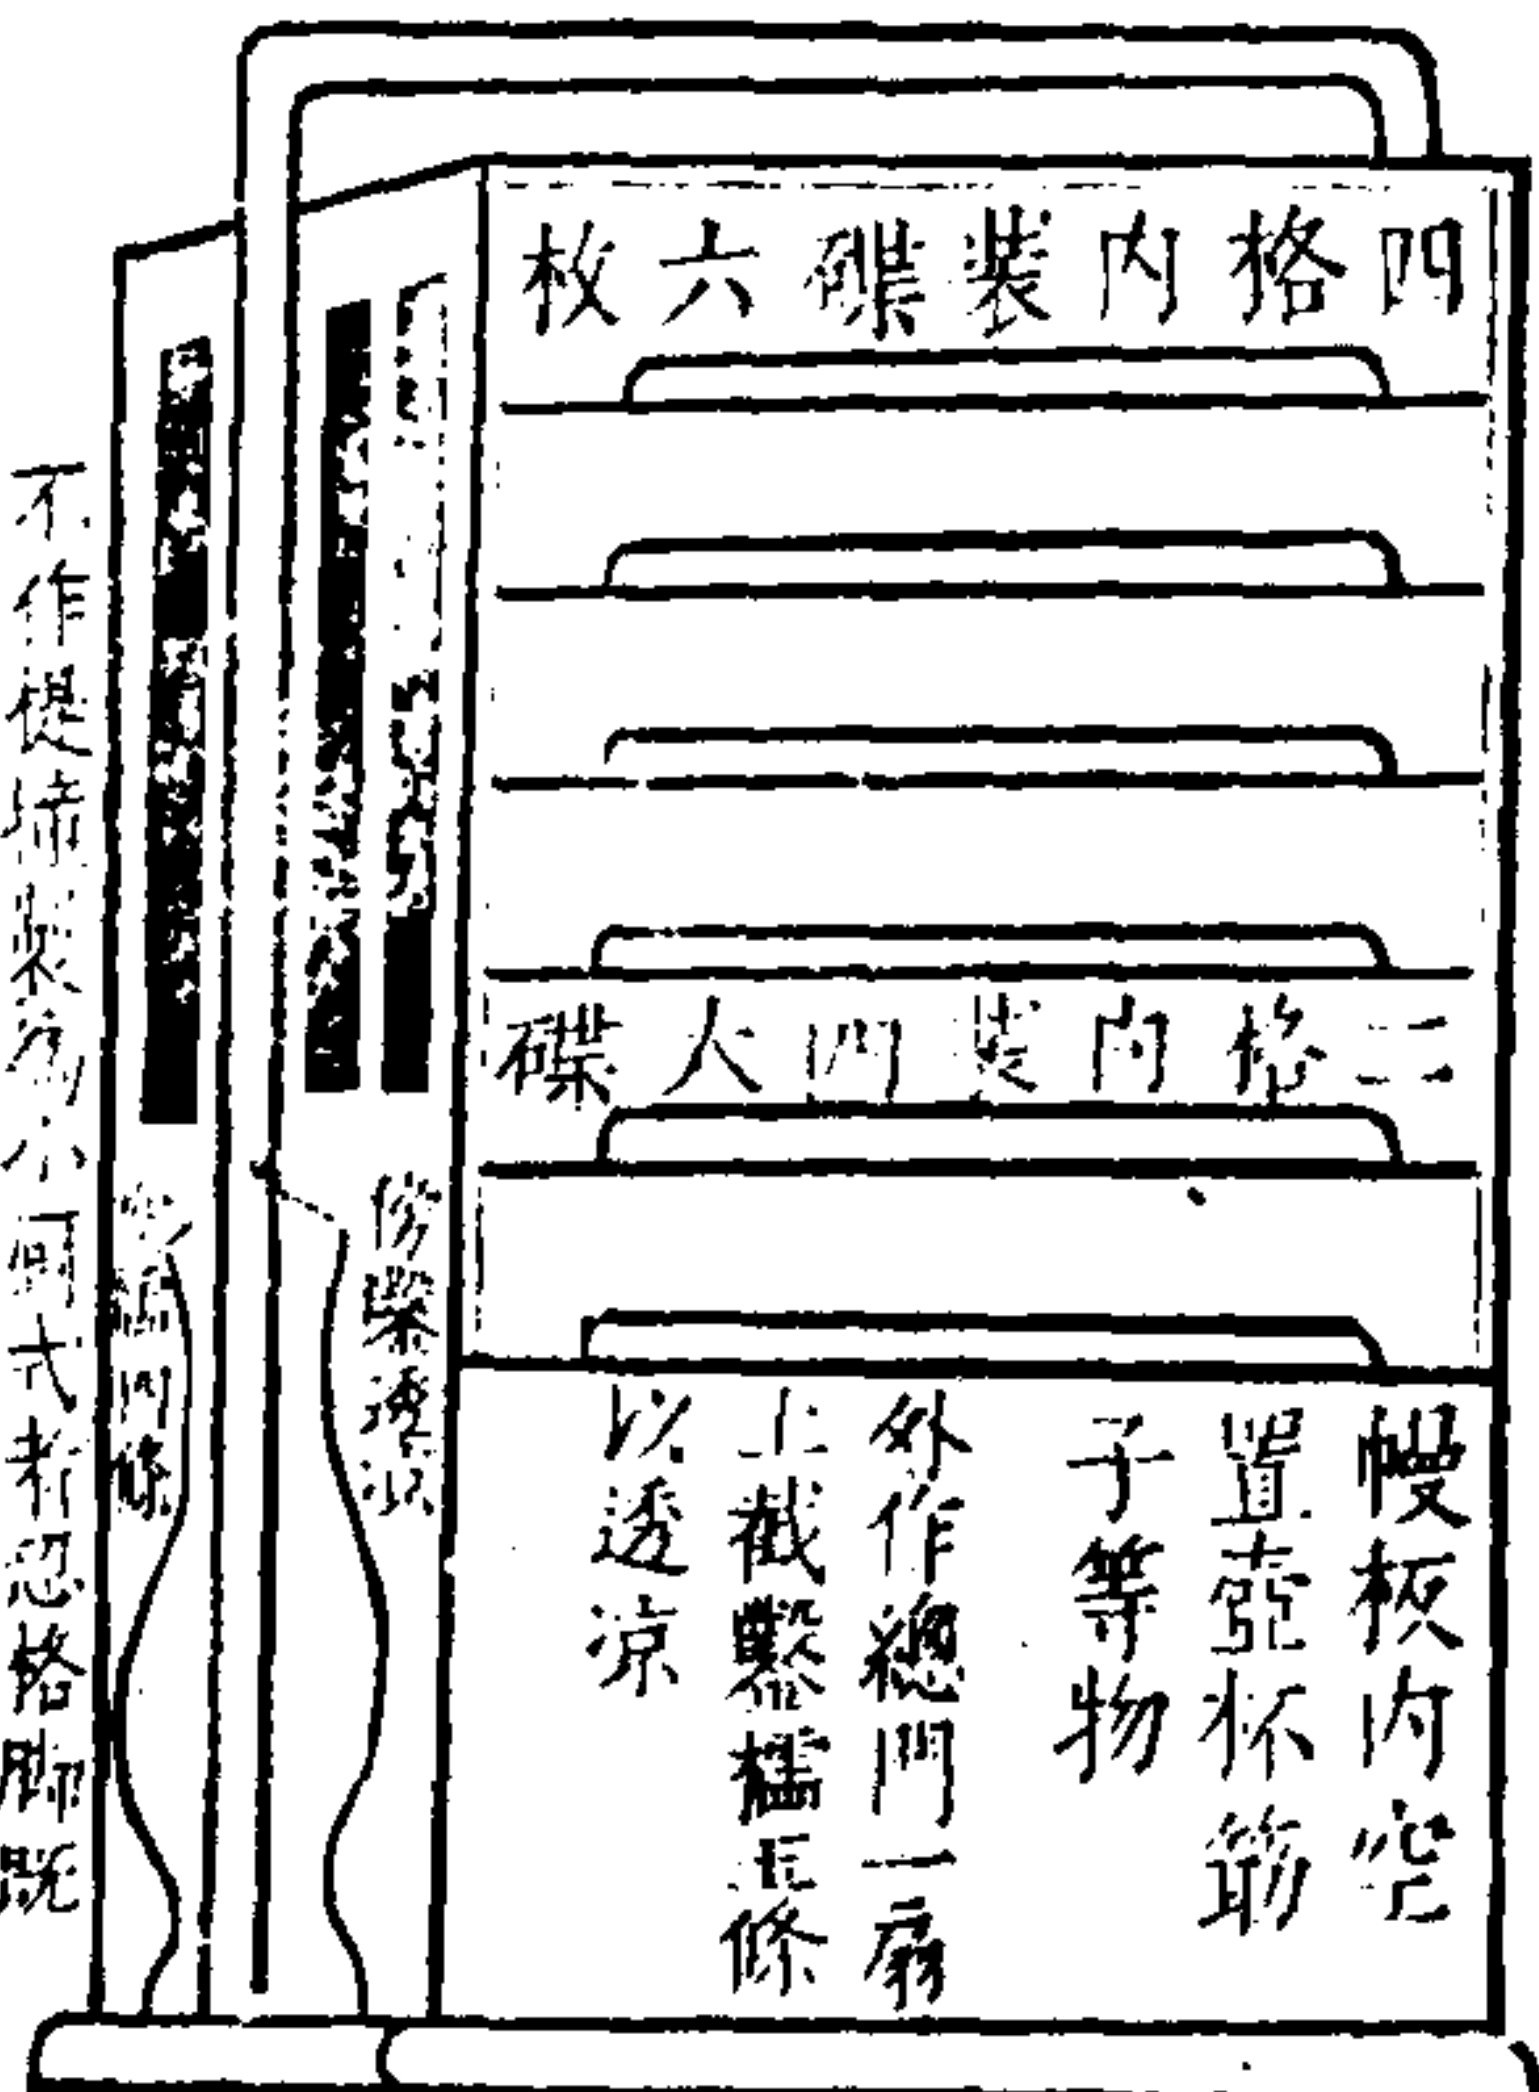 四格内装碟六枚
二格内装四大碟
幔板内空
置壺杯筯
子等物
外作總門一扇
上截鑿櫺五條
以透凉
傍鑿透
櫺四條
不作提 裝為小 式者恐格脚既